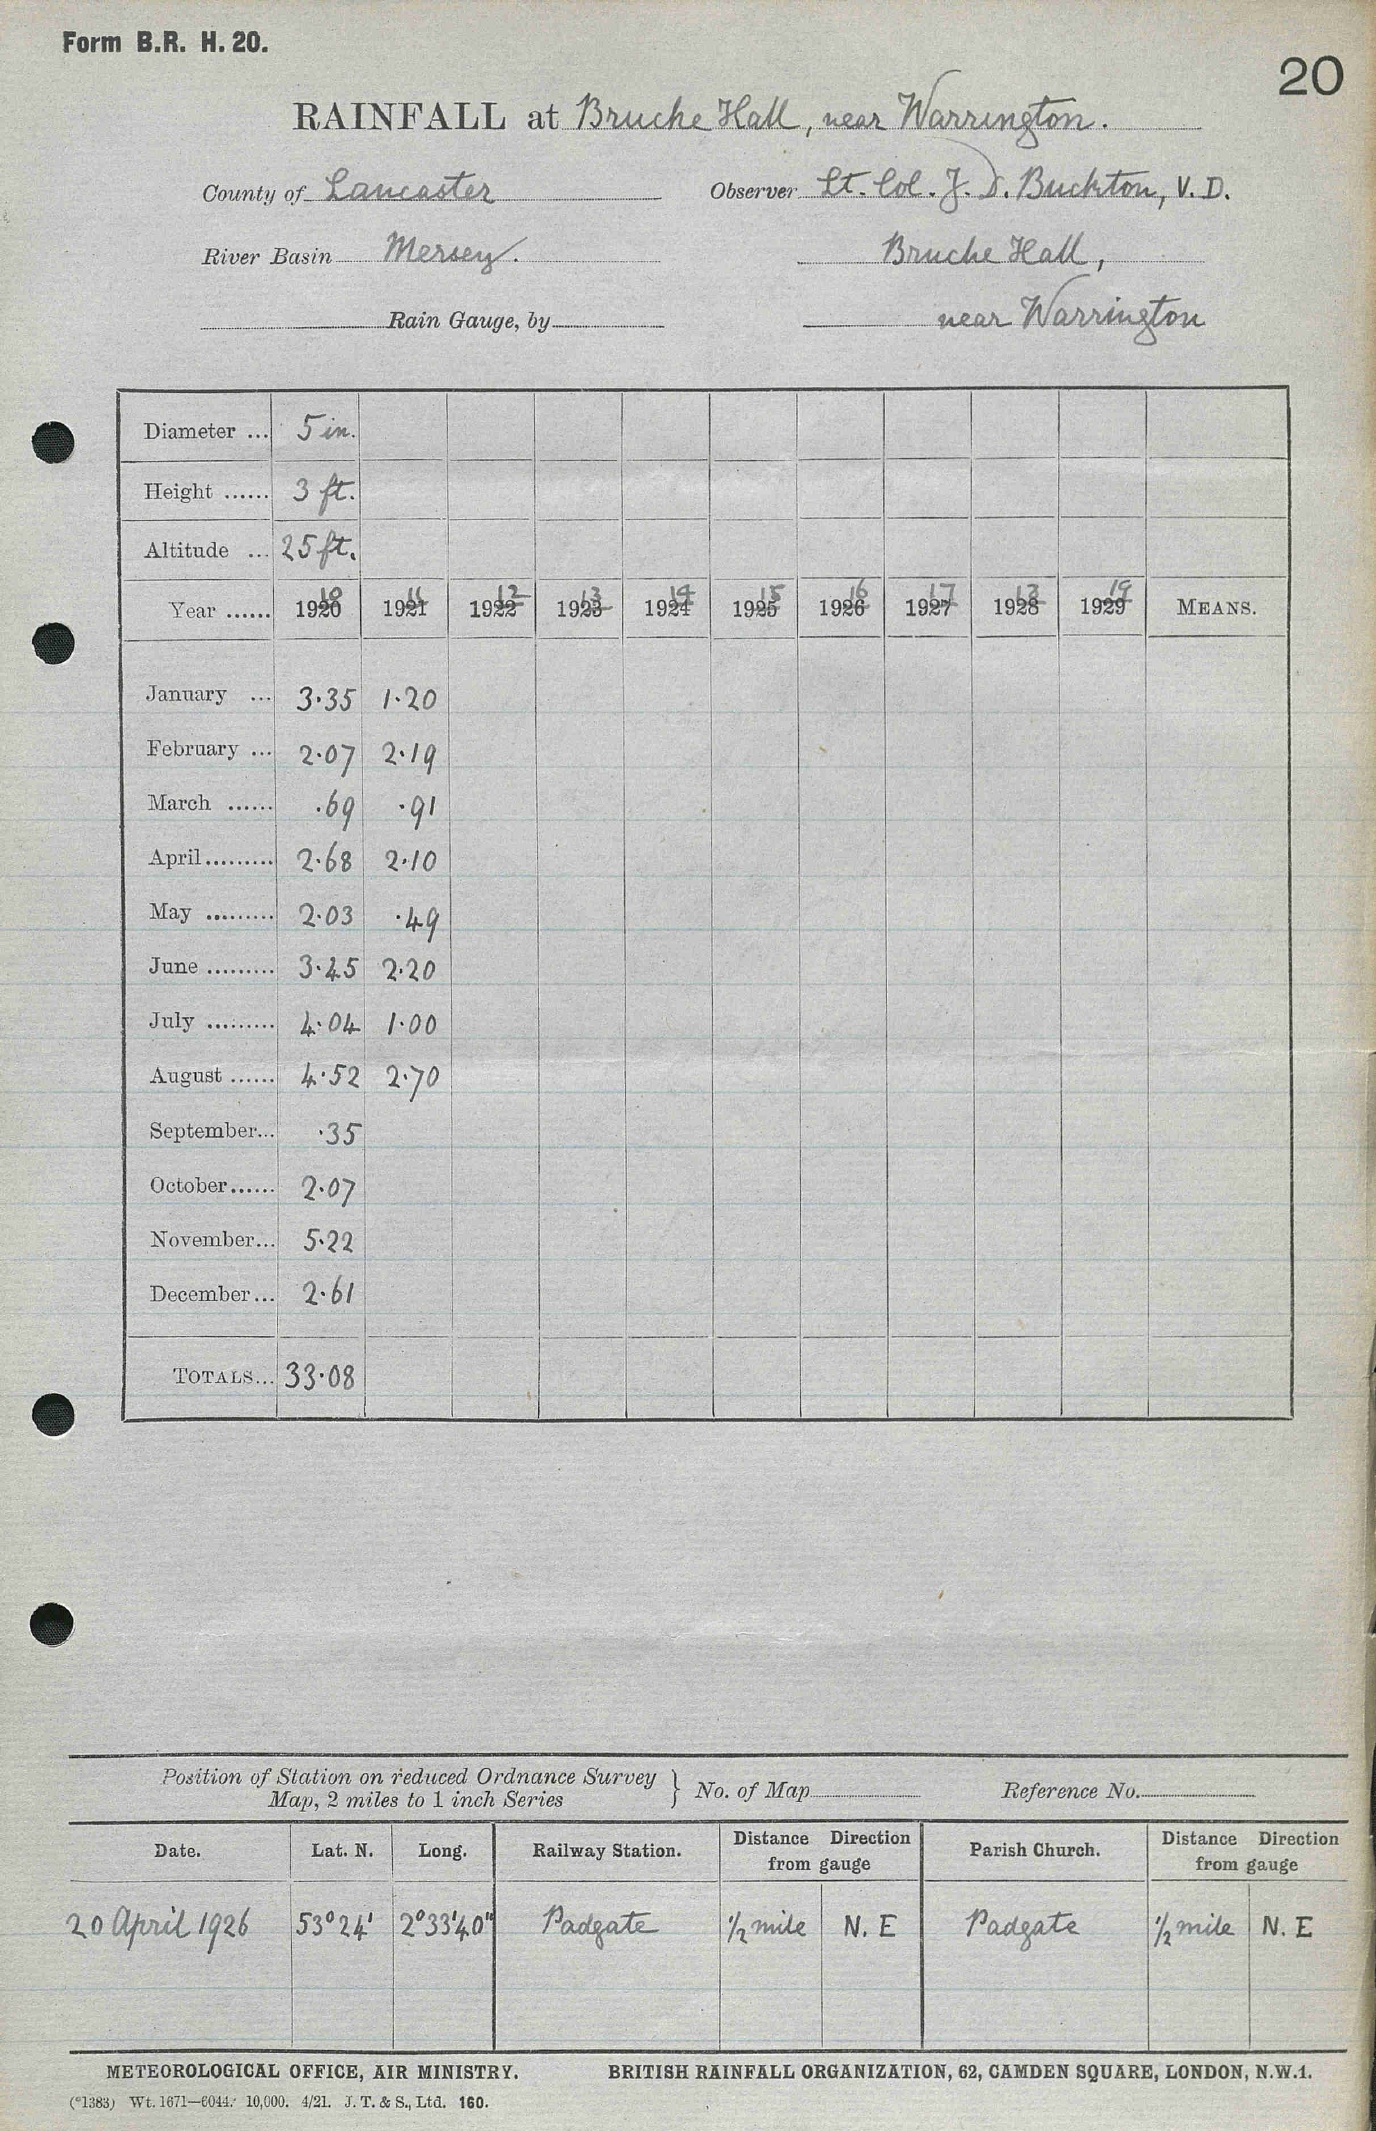 Form B.R. H. 20.
20
RAINFALL at Bruche Hall, near Warrington.
County of Lancaster Observer Lt. Col. J. D. Buckton, V. D.
River Basin Mersey. Bruche Hall,
Rain Gauge, by near Warrington
Diameter ... 5 in.
Height ...... 3 ft.
Altitude ... 25 ft.
10 11 12 13 14 15 16 17 18 19
Year ...... 1920 1921 1922 1923 1924 1925 1926 1927 1928 1929 MEANS.
January ... 3.35 1.20
February ... 2.07 2.19
March ...... .69 .91
April ......... 2.68 2.10
May ......... 2.03 .49
June ......... 3.45 2.20
July ......... 4.04 1.00
August ...... 4.52 2.70
September... .35
October...... 2.07
November... 5.22
December... 2.61
TOTALS... 33.08
Position of Station on reduced Ordnance Survey
Map, 2 miles to 1 inch Series } No. of Map Reference No.
Date. Lat. N. Long. Railway Station. Distance Direction from gauge Parish Church. Distance Direction from gauge
20 April 1926 53°24' 2°33'40" Padgate 1/2 mile N. E Padgate 1/2 mile N. E
METEOROLOGICAL OFFICE, AIR MINISTRY. BRITISH RAINFALL ORGANIZATION, 62, CAMDEN SQUARE, LONDON, N.W.1.
(*1383) Wt. 1671—6044. 10,000. 4/21. J. T. & S., Ltd. 160.